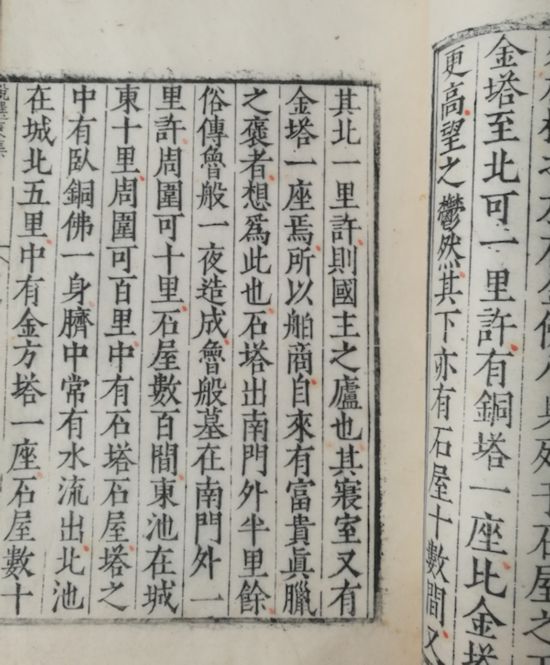 金塔至北可一里許有銅塔一座比金塔
更高望之鬱然其下亦有石屋十數間又
其北一里許則國主之廬也其寢室又有
金塔一座焉所以舶商自來有富貴眞臘
之褒者想爲此也石塔出南門外半里餘
俗傳魯般一夜造成魯般墓在南門外一
里許周圍可十里石屋數百間東池在城
東十里周圍可百里中有石塔石屋塔之
中有臥銅佛一身臍中常有水流出北池
在城北五里中有金方塔一座石屋數十